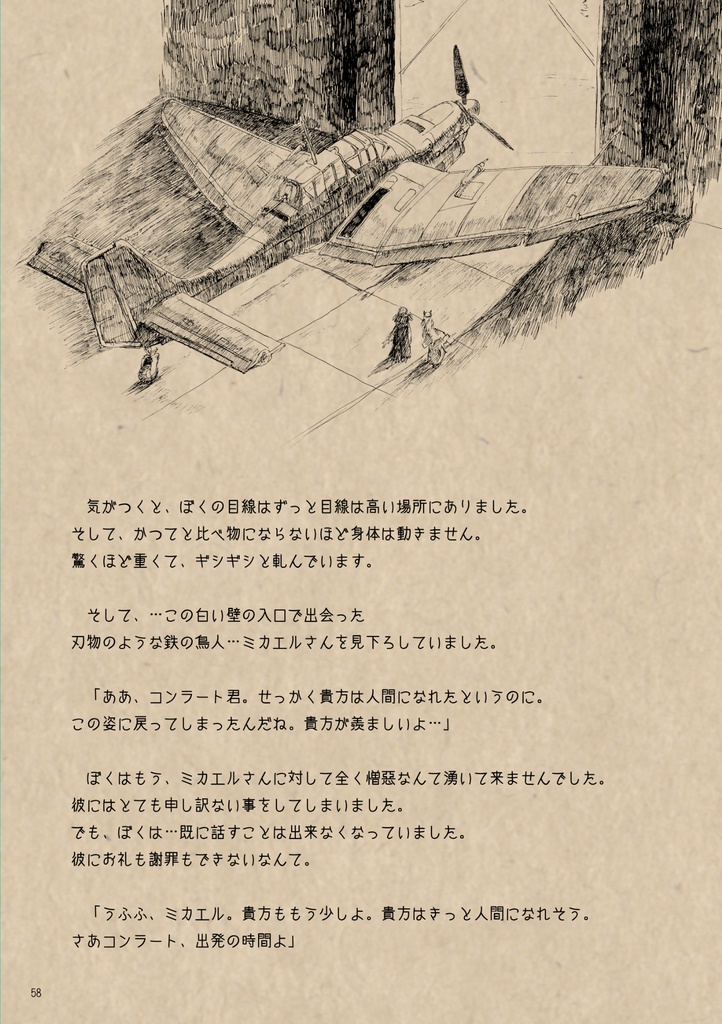 気がつくと、ぼくの目線はずっと目線は高い場所にありました。
そして、かつてと比べ物にならないほど身体は動きません。
驚くほど重くて、ギシギシと軋んでいます。
そして、…この白い壁の入口で出会った
刃物のような鉄の鳥人…ミカエルさんを見下ろしていました。
「ああ、コンラート君。せっかく貴方は人間になれたというのに。
この姿に戻ってしまったんだね。貴方が羨ましいよ…」
ぼくはもう、ミカエルさんに対して全く憎悪なんて湧いて来ませんでした。
彼にはとても申し訳ない事をしてしまいました。
でも、ぼくは…既に話すことは出来なくなっていました。
彼にお礼も謝罪もできないなんて。
「うふふ、ミカエル。貴方ももう少しよ。貴方はきっと人間になれそう。
さあコンラート、出発の時間よ」
58